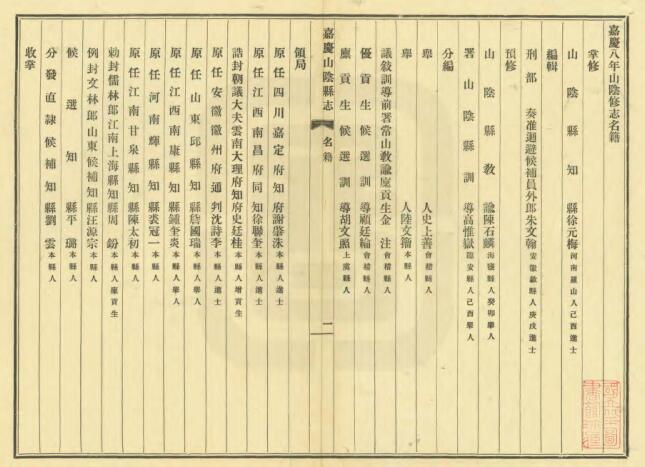 嘉慶八年山陰修志名籍
掌修
山陰縣知縣徐元梅河南羅山人己酉進士
編輯
刑部奏准迴避候補員外郎朱文翰安徽歙縣人庚戌進士
預修
山陰縣教諭陳石麟海鹽縣人癸卯舉人
署山陰縣訓導高惟嶽臨安縣人己酉舉人
分編
舉人史上善會稽縣人
舉人陸文籀本縣人
議敘訓導前署常山教諭廩貢生金注會稽縣人
優貢生候選訓導顧廷綸會稽縣人
廩貢生候選訓導胡文照上虞縣人
嘉慶山陰縣志
名籍
一
領局
原任四川嘉定府知府謝肇洙本縣人進士
原任江西南昌府同知徐聯奎本縣人進士
誥封朝議大夫雲南大理府知府史廷桂本縣人增貢生
原任安徽徽州府通判沈詩李本縣人進士
原任山東邱縣知縣詹國瑞本縣人舉人
原任江西南康縣知縣鍾奎炎本縣人舉人
原任河南輝縣知縣裘冠一本縣人
原任江南甘泉縣知縣陳太初本縣人
勅封儒林郎江南上海縣知縣周鈖本縣人廩貢生
例封文林郎山東候補知縣汪源宗本縣人
候選知縣平璐本縣人
分發直隸候補知縣劉雲本縣人
收掌